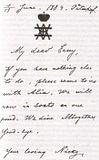 4 June, 1884. Peterhof
My dear Zeny,
If you can nothing else
to do, please come to us
with Alix. We will
row in boats or our
pond. We dine Altogether
Good-bye.
Your loving Nicky